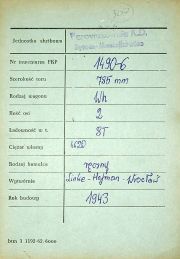 Jednostka służbowa
Parowozownia K.D.
Nr inwentarza PKP 1490-6
Szerokość toru 785 mm
Rodzaj wagonu Wh
Ilość osi 2
Ładowność w t. 8T
Ciężar własny 4620
Rodzaj hamulca ręczny
Wytwórnia Linke-Hofman-Wrocław
Rok budowy 1943